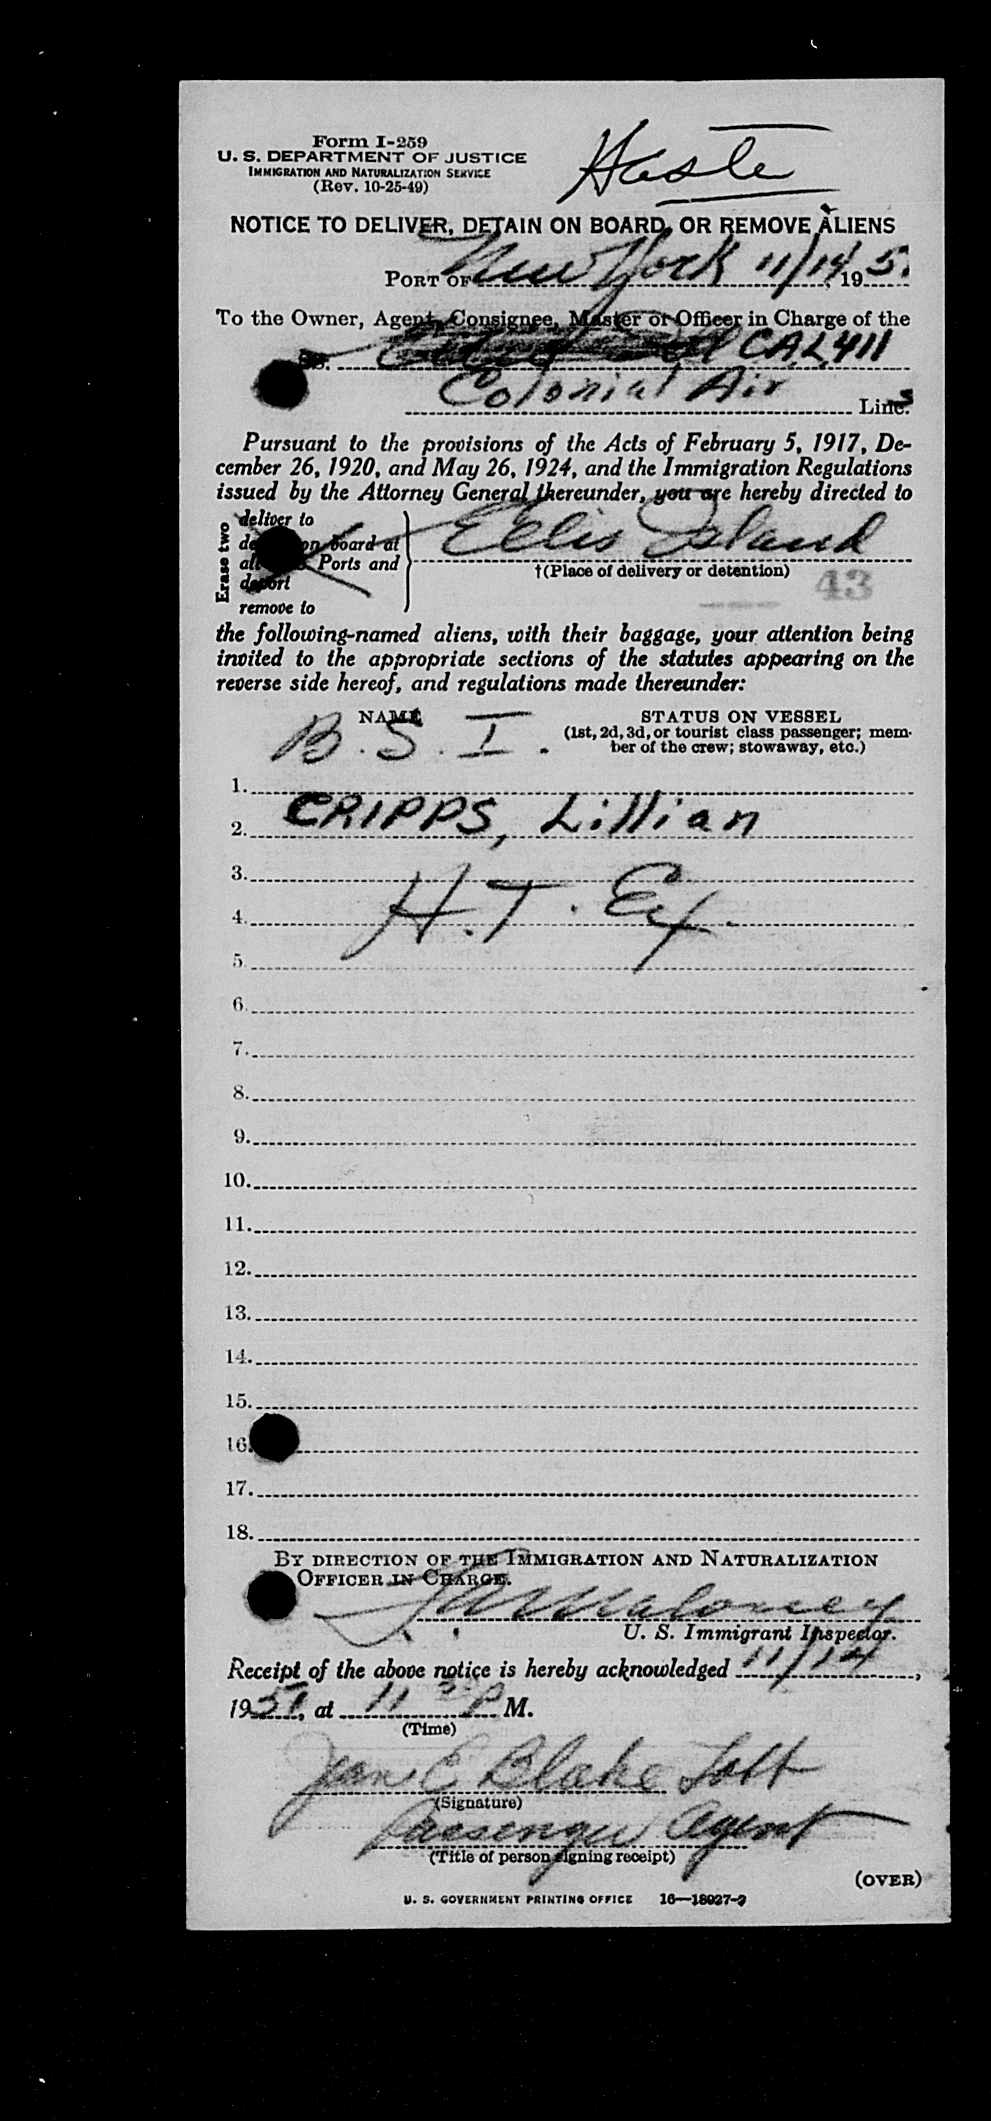 Form I-259
U. S. DEPARTMENT OF JUSTICE
IMMIGRATION AND NATURALIZATION SERVICE
(Rev. 10-25-49)
Haste
NOTICE TO DELIVER, DETAIN ON BOARD, OR REMOVE ALIENS
PORT OF New York 11/14, 195
To the Owner, Agent, Consignee, Master or Officer in Charge of the
CAL 411
Colonial Air Lines
Pursuant to the provisions of the Acts of February 5, 1917, De-
cember 26, 1920, and May 26, 1924, and the Immigration Regulations
issued by the Attorney General thereunder, you are hereby directed to
Erase two
deliver to
on board at
Ports and
deport
remove to
Ellis Island
†(Place of delivery or detention)
43
the following-named aliens, with their baggage, your attention being
invited to the appropriate sections of the statutes appearing on the
reverse side hereof, and regulations made thereunder:
NAME
STATUS ON VESSEL
(1st, 2d, 3d, or tourist class passenger; mem-
ber of the crew; stowaway, etc.)
B. S. I.
1.
2. CRIPPS, Lillian
3.
4. H. T. Ex.
5.
6.
7.
8.
9.
10.
11.
12.
13.
14.
15.
16.
17.
18.
BY DIRECTION OF THE IMMIGRATION AND NATURALIZATION
OFFICER IN CHARGE.
Maloney
U. S. Immigrant Inspector.
Receipt of the above notice is hereby acknowledged 11/14,
1951, at 11 30 P M.
(Time)
Jean C Blake
(Signature)
Passenger Agent
(Title of person signing receipt)
(OVER)
U. S. GOVERNMENT PRINTING OFFICE 16—18027-2